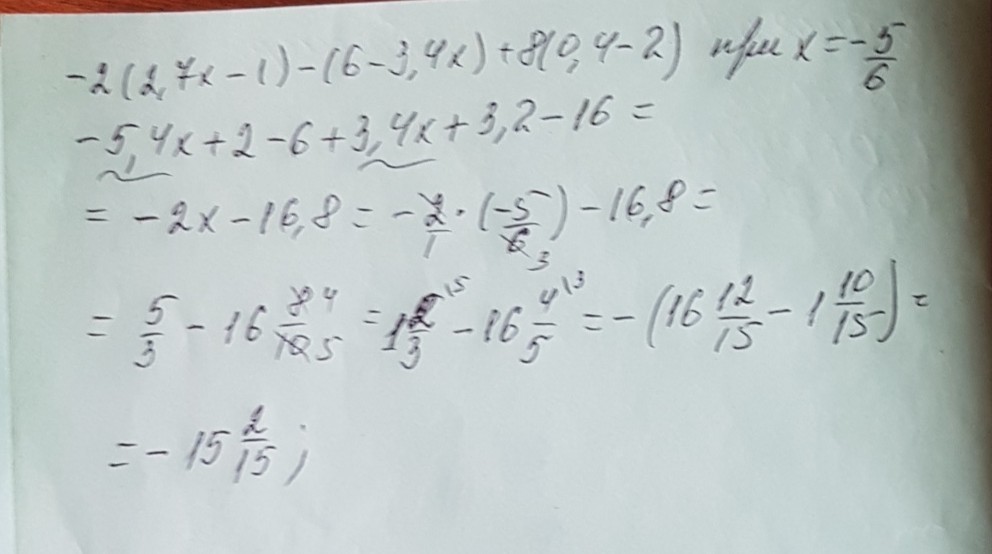 -2(2,7x-1)-(6-3,4x)+8(0,4-2) при x=-5/6
-5,4x+2-6+3,4x+3,2-16=
=-2x-16,8=-2/1·(-5/6 3)-16,8=
=5/3-16 8/10 4/5=1 2/3 ¹⁵-16 4/5 ¹³=-(16 12/15-1 10/15)=
=-15 2/15;